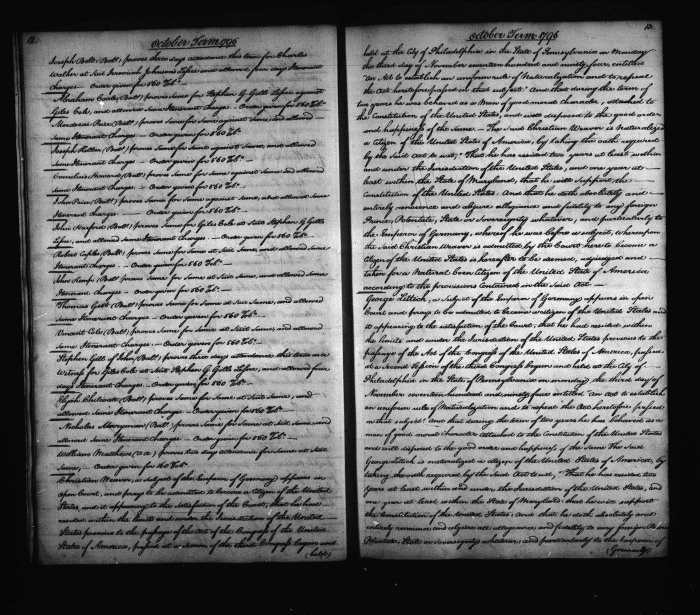 12.
October Term 1796
Joseph Bott (Balt) proves three days attendance this term for Charles
Walker at Suit Jeremiah Johnsons Lessee and allowed four days Itinerant
charges. Order given for 860 Tobo.
Abraham Cole (Balt) proves same for Stephen G. Gills Lessee against
Giles Cole, and allowed same Itinerant charges - Order given for 860 Tobo.
Mordecai Price (Balt) proves same for same against same, and allowed
same Itinerant charges - Order given for 860 Tobo.
Joseph (Balt) proves same for same against same, and allowed
same Itinerant charges - Order given for 860 Tobo.
Cornelius Howard (Balt) proves same for same against same and allowed
same Itinerant charges - Order given for 860 Tobo.
John Price (Balt) proves same for same against same, and allowed same
Itinerant charges - Order given for 860 Tobo.
John (Balt) proves same for Giles Cole at suit Stephen G Gills
Lessee, and allowed same Itinerant charges - Order given for 860 Tobo.
Robert (Balt) proves same for same at suit same, and allowed same
Itinerant charges - Order given for 860 Tobo.
John Kemp (Balt) proves same for same at suit same, and allowed same
Itinerant charges - Order given for 860 Tobo.
Thomas Gist (Balt) proves same for same at suit same, and allowed
same Itinerant charges - Order given for 860 Tobo.
Vincent Cole (Balt) proves same for same at suit same, and allowed
same Itinerant charges - Order given for 860 Tobo.
Stephen Gill of John (Balt) proves three days attendance this term as a
Witness for Giles Cole at suit Stephen G Gills Lessee, and allowed four
days Itinerant charges - Order given for 860 Tobo.
Elijah (Balt) proves same for same at suit same, and
allowed same Itinerant charges - Order given for 860 Tobo.
Nicholas Merryman (Balt) proves same for same at suit same, and
allowed same Itinerant charges - Order given for 860 Tobo.
William Matthews proves two days attendance for same at suit
same, - Order given for 160 Tobo.
Christian Weaver, a subject of the Emperor of Germany appears in
open Court, and prays to be admitted to become a citizen of the United
States, and it appearing to the satisfaction of the Court, that he had
resided within the limits and under the Jurisdiction of the United
States previous to the passage of the Act of the Congress of the United
States of America, passed at a session of the third Congress begun and
(held)
13.
October Term 1796
held at the City of Philadelphia in the State of Pennsylvania on Monday
the third day of November seventeen hundred and ninety four, entitled
"an Act to establish an uniform rule of Naturalization and to repeal
the Act heretofore passed on that subject." And that during the term of
two years he was behaved as a Man of good moral character, attached to
the Constitution of the United States, and well disposed to the good order
and happiness of the same. - The said Christian Weaver is Naturalized
a citizen of the United States of America, by taking the oath required
by the said Act to wit, "That he has resided two years at least within
and under the Jurisdiction of the United States and one year at
least within the State of Maryland, that he will support the
Constitution of the United States. And that he doth absolutely and
entirely renounce and abjure allegiance and fidelity to any foreign
Prince, Potentate, State or Sovereignty whatever, and particularly to
the Emperor of Germany, whereof he was before a subject, Whereupon
the said Christian Weaver is admitted by the Court here to become a
citizen of the United States is hereafter to be deemed, adjudged and
taken for a Natural born citizen of the United State of America
according to the provisions contained in the said Act -
George Littich, a subject of the Emperor of Germany appears in open
Court and prays to be admitted to become a citizen of the United States and
it appearing to the satisfaction of the Court, that he had resided within
the limits and under the Jurisdiction of the United States previous to the
passage of the Act of the Congress of the United States of America, passed
at a second Session of the third Congress begun and held at the city of
Philadelphia in the State of Pennsylvania on monday the third day of
November seventeen hundred and ninety four entitled "an act to establish
an uniform rule of Naturalization and to repeal the Act heretofore passed
on that subject" and that during the term of two years he has behaved as a
man of good moral character attached to the Constitution of the United States
and well disposed to the good order and happiness of the same the said
George Littich is naturalized a citizen of the United States of America, by
taking the oath required by the said Act to wit, "That he has resided two
years at least within and under the Jurisdiction of the United States, and
one year at least within the State of Maryland that he will support
the Constitution of the United States, and that he doth absolutely and
entirely renounce and abjure all allegiance, and fidelity to any foreign Prince
Potentate, State or Sovereignty whatever, and particularly to the Emperor of
(Germany)